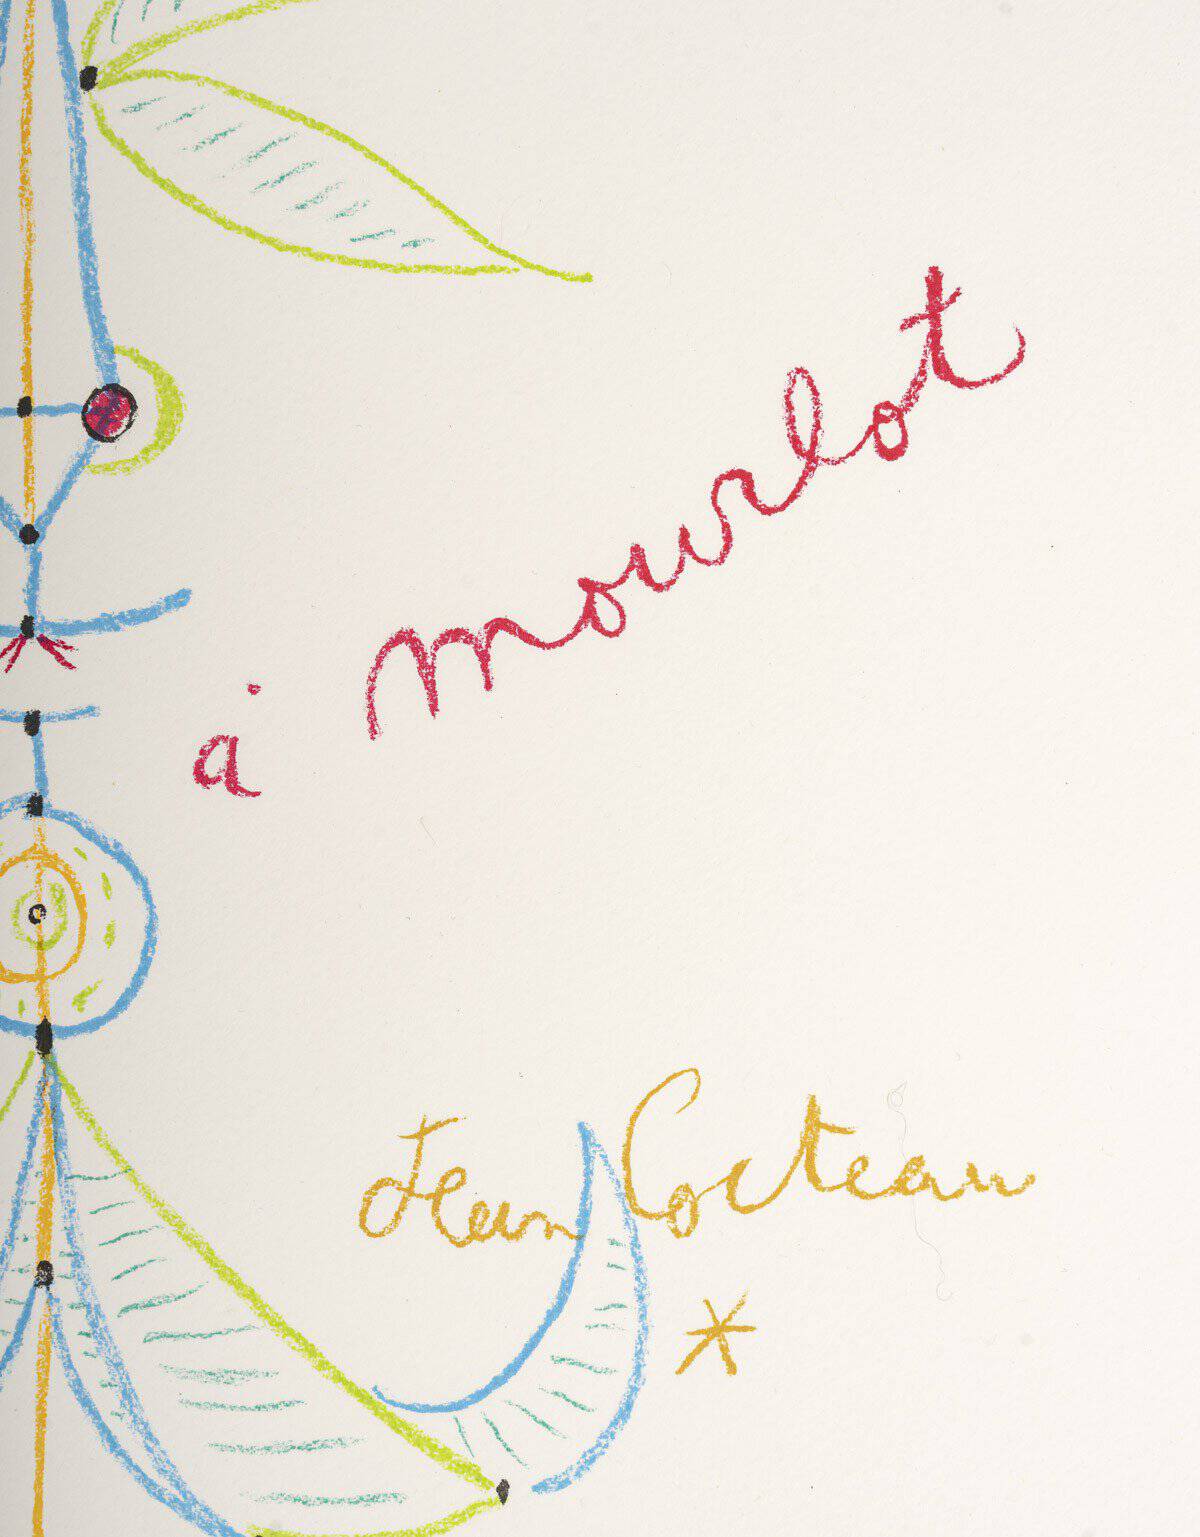 à mourlot
Jean Cocteau